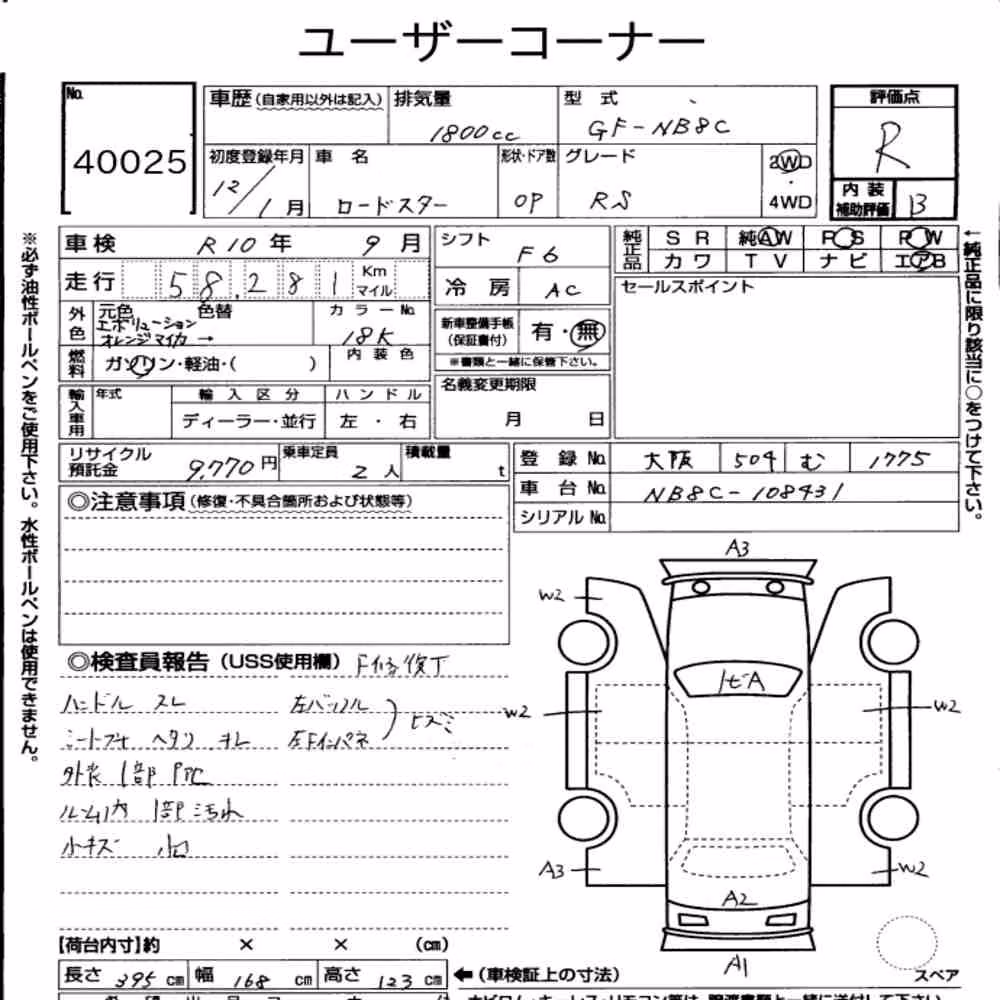 ユーザーコーナー
No.
40025
車歴 (自家用以外は記入)
排気量
1800cc
型式
GF-NB8C
評価点
R
初度登録年月
12/1月
車名
ロードスター
形状・ドア数
OP
グレード
RS
2WD
・
4WD
内装
補助評価
B
車検 R10年 9月
走行 58,281 Km
マイル
外色
元色
色替
エボリューション
オレンジマイカ →
カラーNo.
18K
燃料
ガソリン・軽油・( )
内装色
輸入車用
年式
輸入区分
ハンドル
ディーラー・並行
左・右
シフト
F6
冷房
AC
新車整備手帳
(保証書付)
有・無
※書類と一緒に保管下さい。
名義変更期限
月 日
純正品
SR 純AW PS PW
カワ TV ナビ エアB
セールスポイント
リサイクル
預託金
9,770円
乗車定員
2人
積載量
t
登録No. 大阪 504 む 1775
車台No. NB8C-108431
シリアルNo.
◎注意事項 (修復・不具合箇所および状態等)
◎検査員報告 (USS使用欄)
ハンドル スレ
左バッフル
左Fインパネ
シートフナ ヘタリ キレ
外装 1部
ルーム内 1部 汚れ
小キズ 凹
A3
W2
W2
W2
A3
W2
A2
A1
スペア
【荷台内寸】約 × × (cm)
長さ 395 cm 幅 168 cm 高さ 123 cm
←(車検証上の寸法)
※必ず油性ボールペンをご使用下さい。水性ボールペンは使用できません。
←純正品に限り該当に○をつけて下さい。